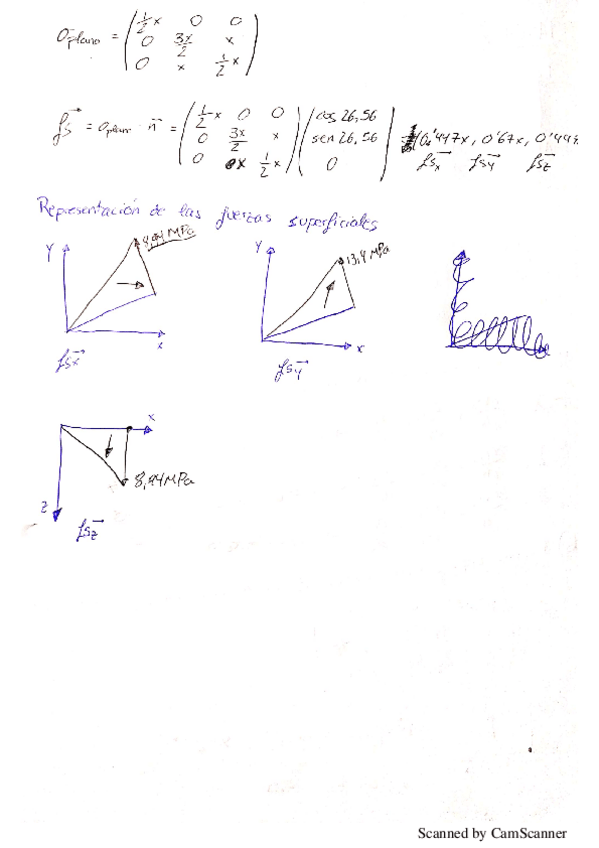 σplano = ( ½x 0 0
0 3x/2 x
0 x ½x )
fs = σplano n = ( ½x 0 0
0 3x/2 x
0 x ½x ) ( cos 26,56
sen 26,56
0 ) = (0'447x, 0'67x, 0'447x
fsx fsy fsz
Representación de las fuerzas superficiales
y 8,94 MPa
x
fsx
y 13,4 MPa
x
fsy
x
8,94 MPa
z
fsz
Scanned by CamScanner